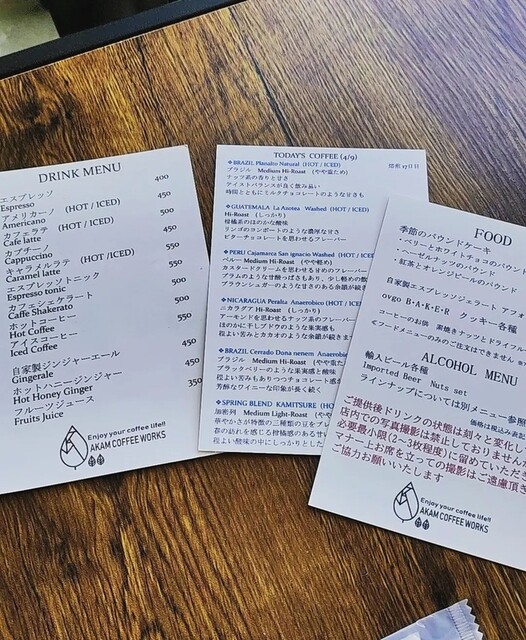 DRINK MENU
エスプレッソ 400
Espresso
アメリカーノ (HOT / ICED) 450
Americano
カフェラテ (HOT / ICED) 500
Cafe latte
カプチーノ 500
Cappuccino
キャラメルラテ (HOT / ICED) 550
Caramel latte
エスプレッソトニック 550
Espresso tonic
カフェシェケラート 500
Caffe Shakerato
ホットコーヒー 500
Hot Coffee
アイスコーヒー 550
Iced Coffee
自家製ジンジャーエール 450
Gingerale
ホットハニージンジャー 450
Hot Honey Ginger
フルーツジュース 350
Fruits Juice
Enjoy your coffee life!!
AKAM COFFEE WORKS
TODAY'S COFFEE (4/9)
❖BRAZIL Planalto Natural (HOT / ICED) 焙煎
ブラジル Medium Hi-Roast (やや重ため)
ナッツ系の香りと甘さ
テイストバランスが良く飲み易い
時間とともにミルクチョコレートのような甘さも
❖GUATEMALA La Azotea Washed (HOT / ICED)
Hi-Roast (しっかり)
柑橘系のほのかな酸味
リンゴのコンポートのような濃厚な甘さ
ビターチョコレートを思わせるフレーバー
❖PERU Cajamarca San ignacio Washed (HOT
ペルー Medium Hi-Roast (やや軽め)
カスタードクリームを思わせる甘めのフレーバー
プラムのような甘酸っぱさもあり、少し軽めの飲
ブラウンシュガーのような甘さのある余韻が続き
❖NICARAGUA Peralta Anaerobico (HOT
ニカラグア Hi-Roast (しっかり)
アーモンドを思わせるナッツ系のフレーバー
ほのかに干しブドウのような果実感も
程よい苦みとカカオのような余韻が続きま
❖BRAZIL Cerrado Duna nenem Anaerobic
ブラジル Medium Hi-Roast (やや重た
ブラックベリーのような果実感と酸味
程よい苦みもありつつチョコレート感
芳醇なワイニーな印象が長く続く
❖SPRING BLEND KAMITSURE (HOT
加密列 Medium Light-Roast (やや
華やかさが特徴の三種類の豆をブレ
春の訪れを感じる柑橘感のある甘い
程よい酸味の中にしっかりとした
FOOD
季節のパウンドケーキ
・ベリーとホワイトチョコのパウンド
・ヘーゼルナッツのパウンド
・紅茶とオレンジピールのパウンド
自家製エスプレッソジェラート アフォ
ovgo B・A・K・E・R クッキー各種
コーヒーのお供 素焼きナッツとドライフル
≪フードメニューのみのご注文はできません
ALCOHOL MENU
輸入ビール各種
Imported Beer Nuts set
ラインナップについては別メニュー参照
価格は税込み表
ご提供後ドリンクの状態は刻々と変化し
店内での写真撮影は禁止しておりません
必要最小限(2~3枚程度)に留めていただ
マナー上お席を立っての撮影はご遠慮頂き
ご協力お願いいたします
Enjoy your coffee life!!
AKAM COFFEE WORKS